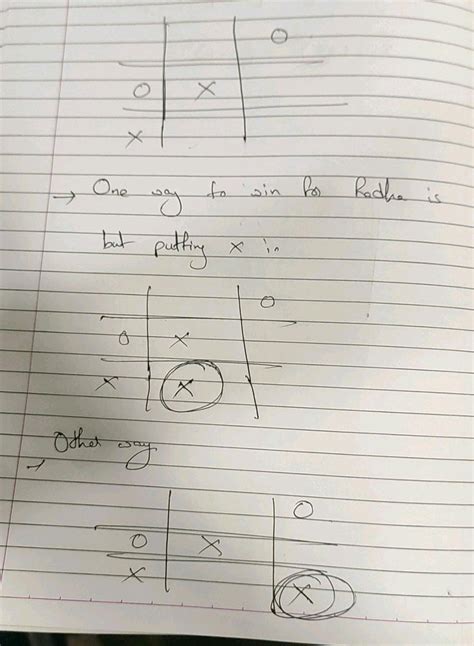 O
O X
X
→ One way to win for Radha is
but putting x in
O
O X
X X
→ Other way
O
O X
X X